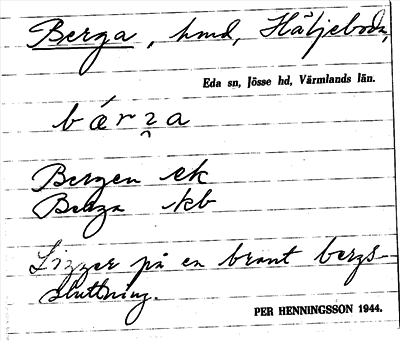 Berga, hmd, Häljeboda,
Eda sn, Jösse hd, Värmlands län.
bǽrz̯a
Bergen ek
Berga kb
Ligger på en brant bergs-
sluttning.
PER HENNINGSSON 1944.